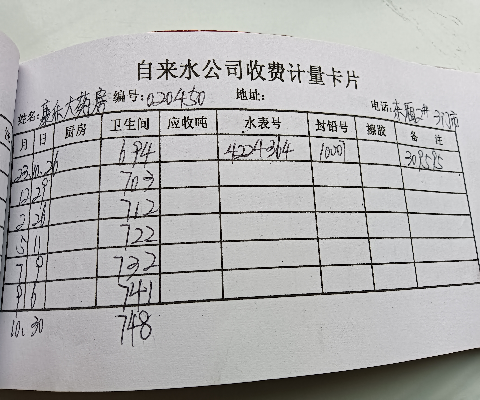 自来水公司收费计量卡片
姓名: 康乐大药房 编号: 020450 地址: 电话:
月 日 厨房 卫生间 应收吨 水表号 封铅号 搬设 备 注
23.10.26 694 4224364 10007 309595
12 29 703
2 28 712
5 11 722
7 9 732
9 6 741
10. 30 748